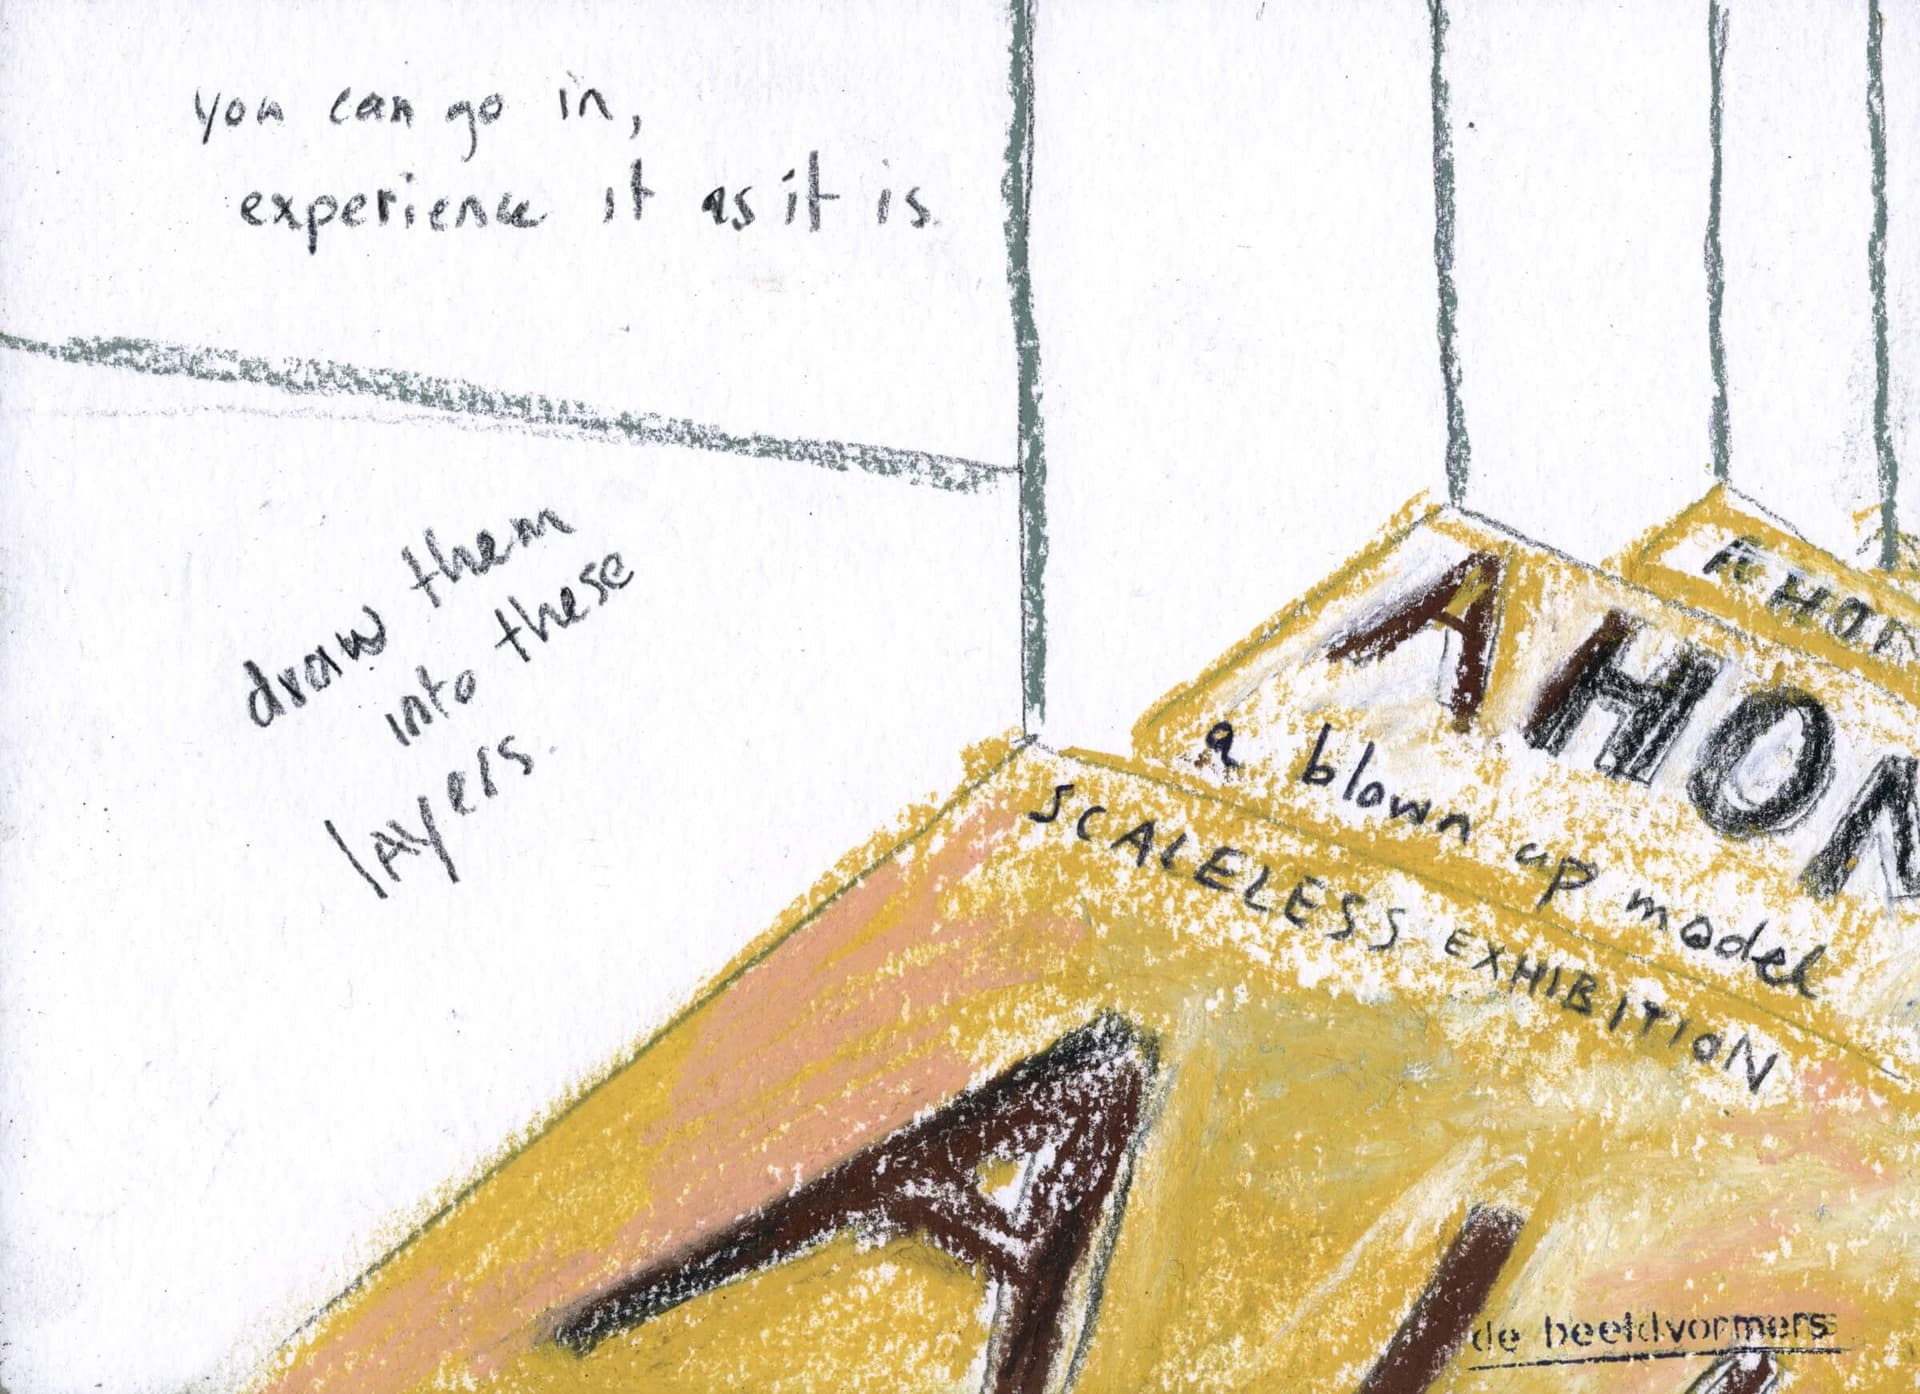 you can go in,
experience it as it is.
draw them
into these
layers.
A HOM
A HON
a blown up model
SCALELESS EXHIBITION
A
de beeldvormers